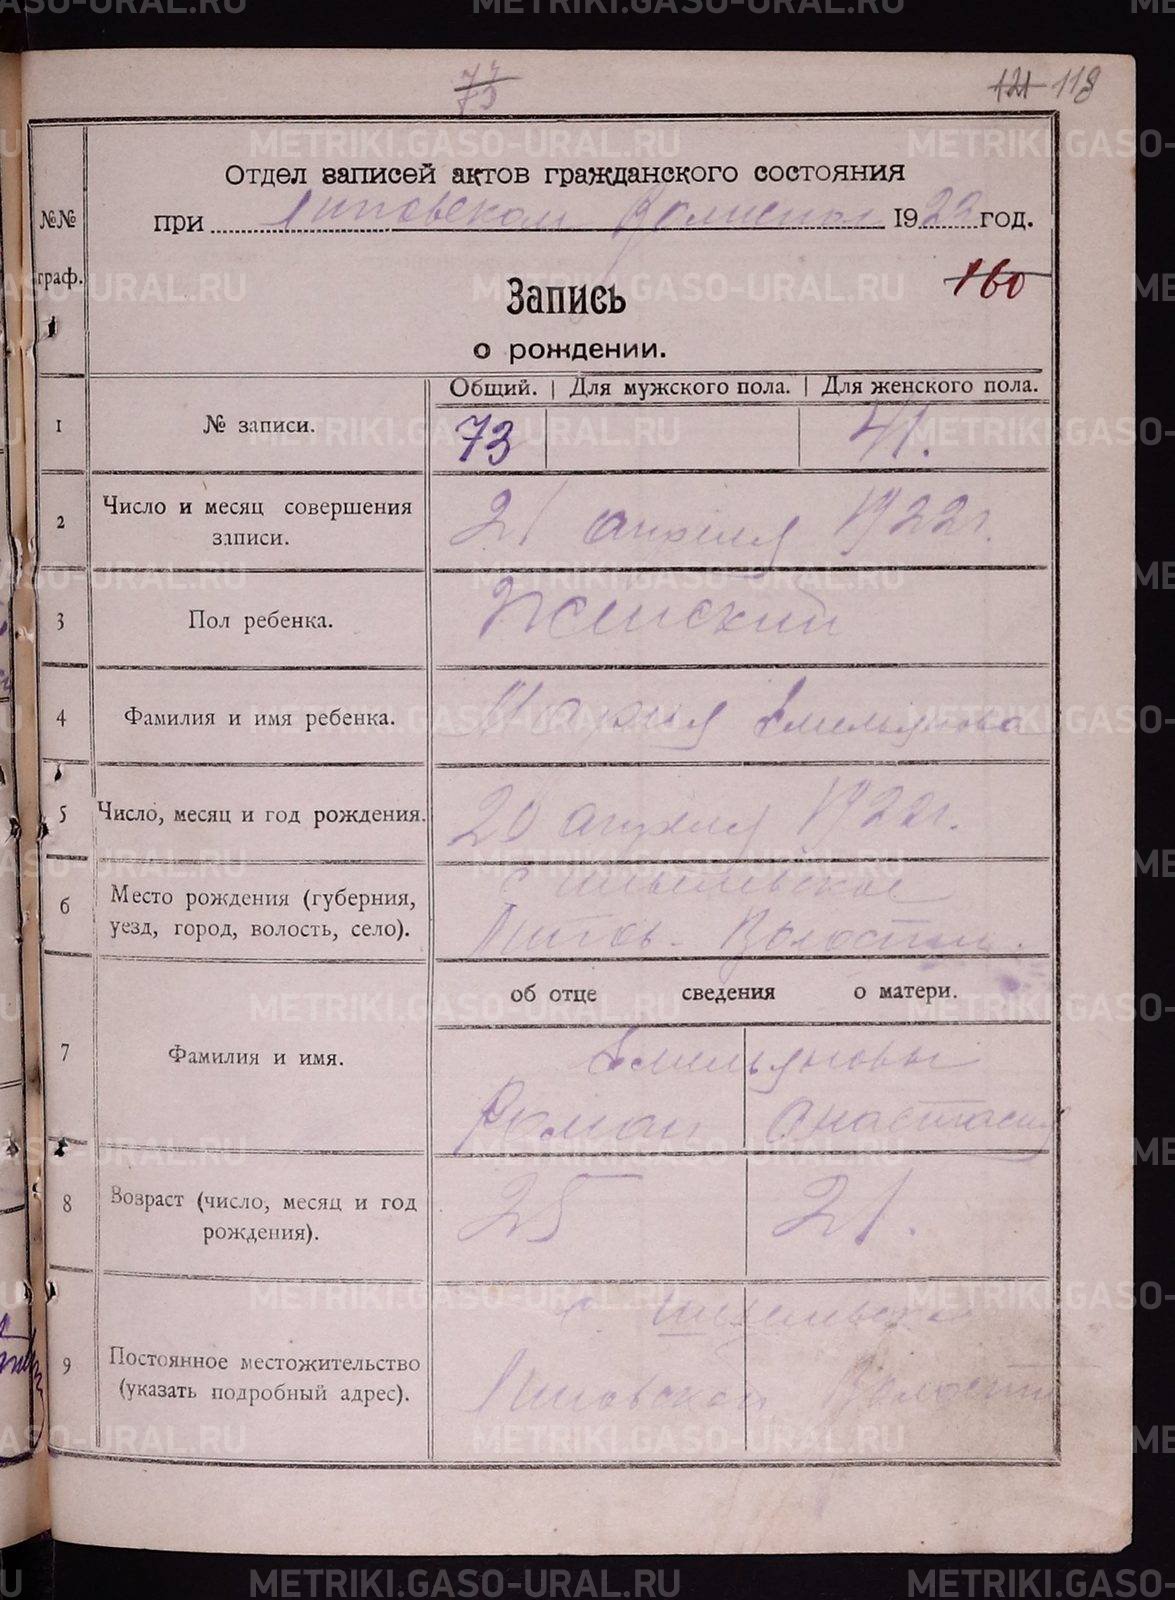 73
121 118
Отдел записей актов гражданского состояния
при Липовском Волиспол 1922 год.
№№
граф.
160
Запись
о рождении.
Общий. Для мужского пола. Для женского пола.
1 № записи. 73 41.
2 Число и месяц совершения
записи. 21 апреля 1922 г.
3 Пол ребенка. Женский
4 Фамилия и имя ребенка. Мария Емельянова
5 Число, месяц и год рождения. 20 апреля 1922 г.
6 Место рождения (губерния, с
уезд, город, волость, село). Волости.
об отце сведения о матери.
Емельяновы
7 Фамилия и имя. Роман Анастасия
8 Возраст (число, месяц и год
рождения). 25 21.
с.
9 Постоянное местожительство
(указать подробный адрес). Липовской Волости
METRIKI.GASO-URAL.RU